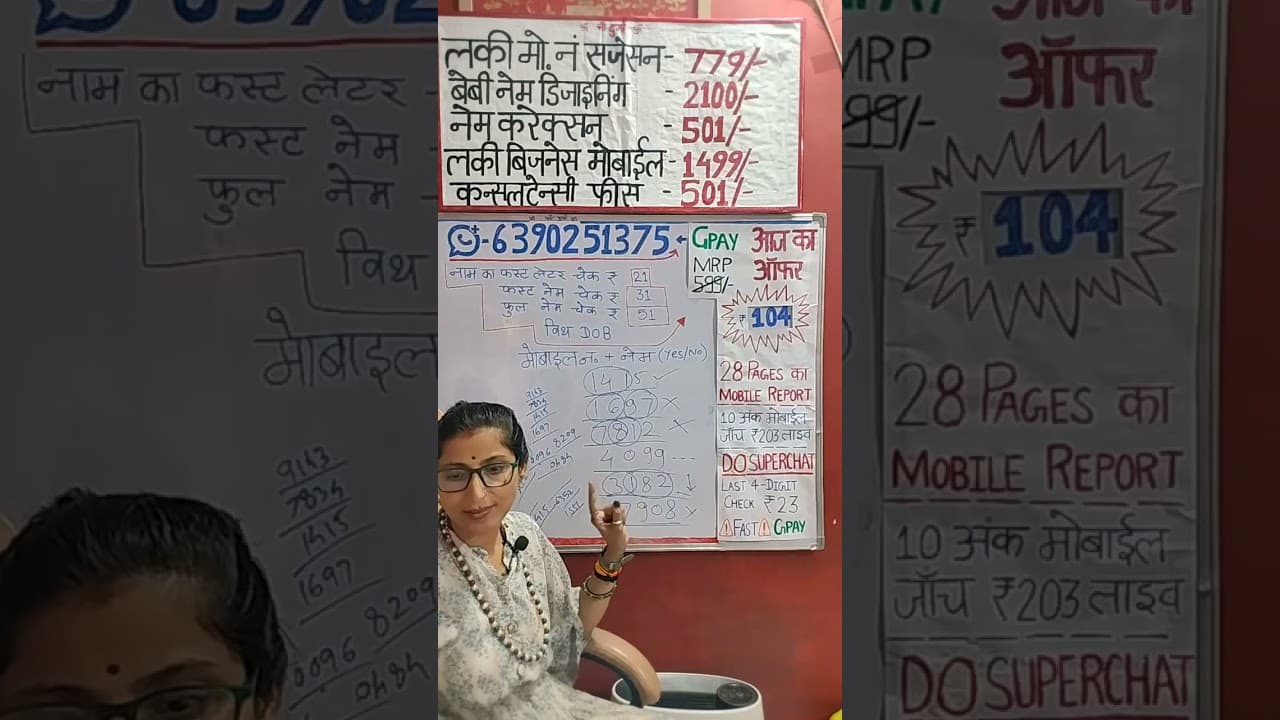 लकी मो. नं सजेसन- 779/-
बेबी नेम डिजाइनिंग - 2100/-
नेम करेक्सन - 501/-
लकी बिजनेस मोबाईल- 1499/-
कन्सलटेन्सी फीस - 501/-
-6390251375
GPAY
MRP
599/-
आज का
ऑफर
₹ 104
नाम का फस्ट लेटर चेक ₹ 21
फस्ट नेम चेक ₹ 31
फुल नेम चेक ₹ 51
विथ DOB
मोबाइल न. + नेम (Yes/No)
1415 ✓
1697 ×
7812 ×
4099 ---
3182 ↓
7908 ×
9143
7834
1415
1697
0096 8209
0484
1415 6352
28 PAGES का
MOBILE REPORT
10 अंक मोबाईल
जाँच ₹203 लाइव
DO SUPERCHAT
LAST 4-DIGIT
CHECK ₹23
FAST GPAY
639025
नाम का फस्ट लेटर -
फस्ट नेम
फुल नेम
विथ
मोबाइल
9143
7834
1415
1697
0096 8209
0484
MRP
99/-
आज का
ऑफर
₹ 104
28 PAGES का
MOBILE REPORT
10 अंक मोबाईल
जाँच ₹203 लाइव
DO SUPERCHAT